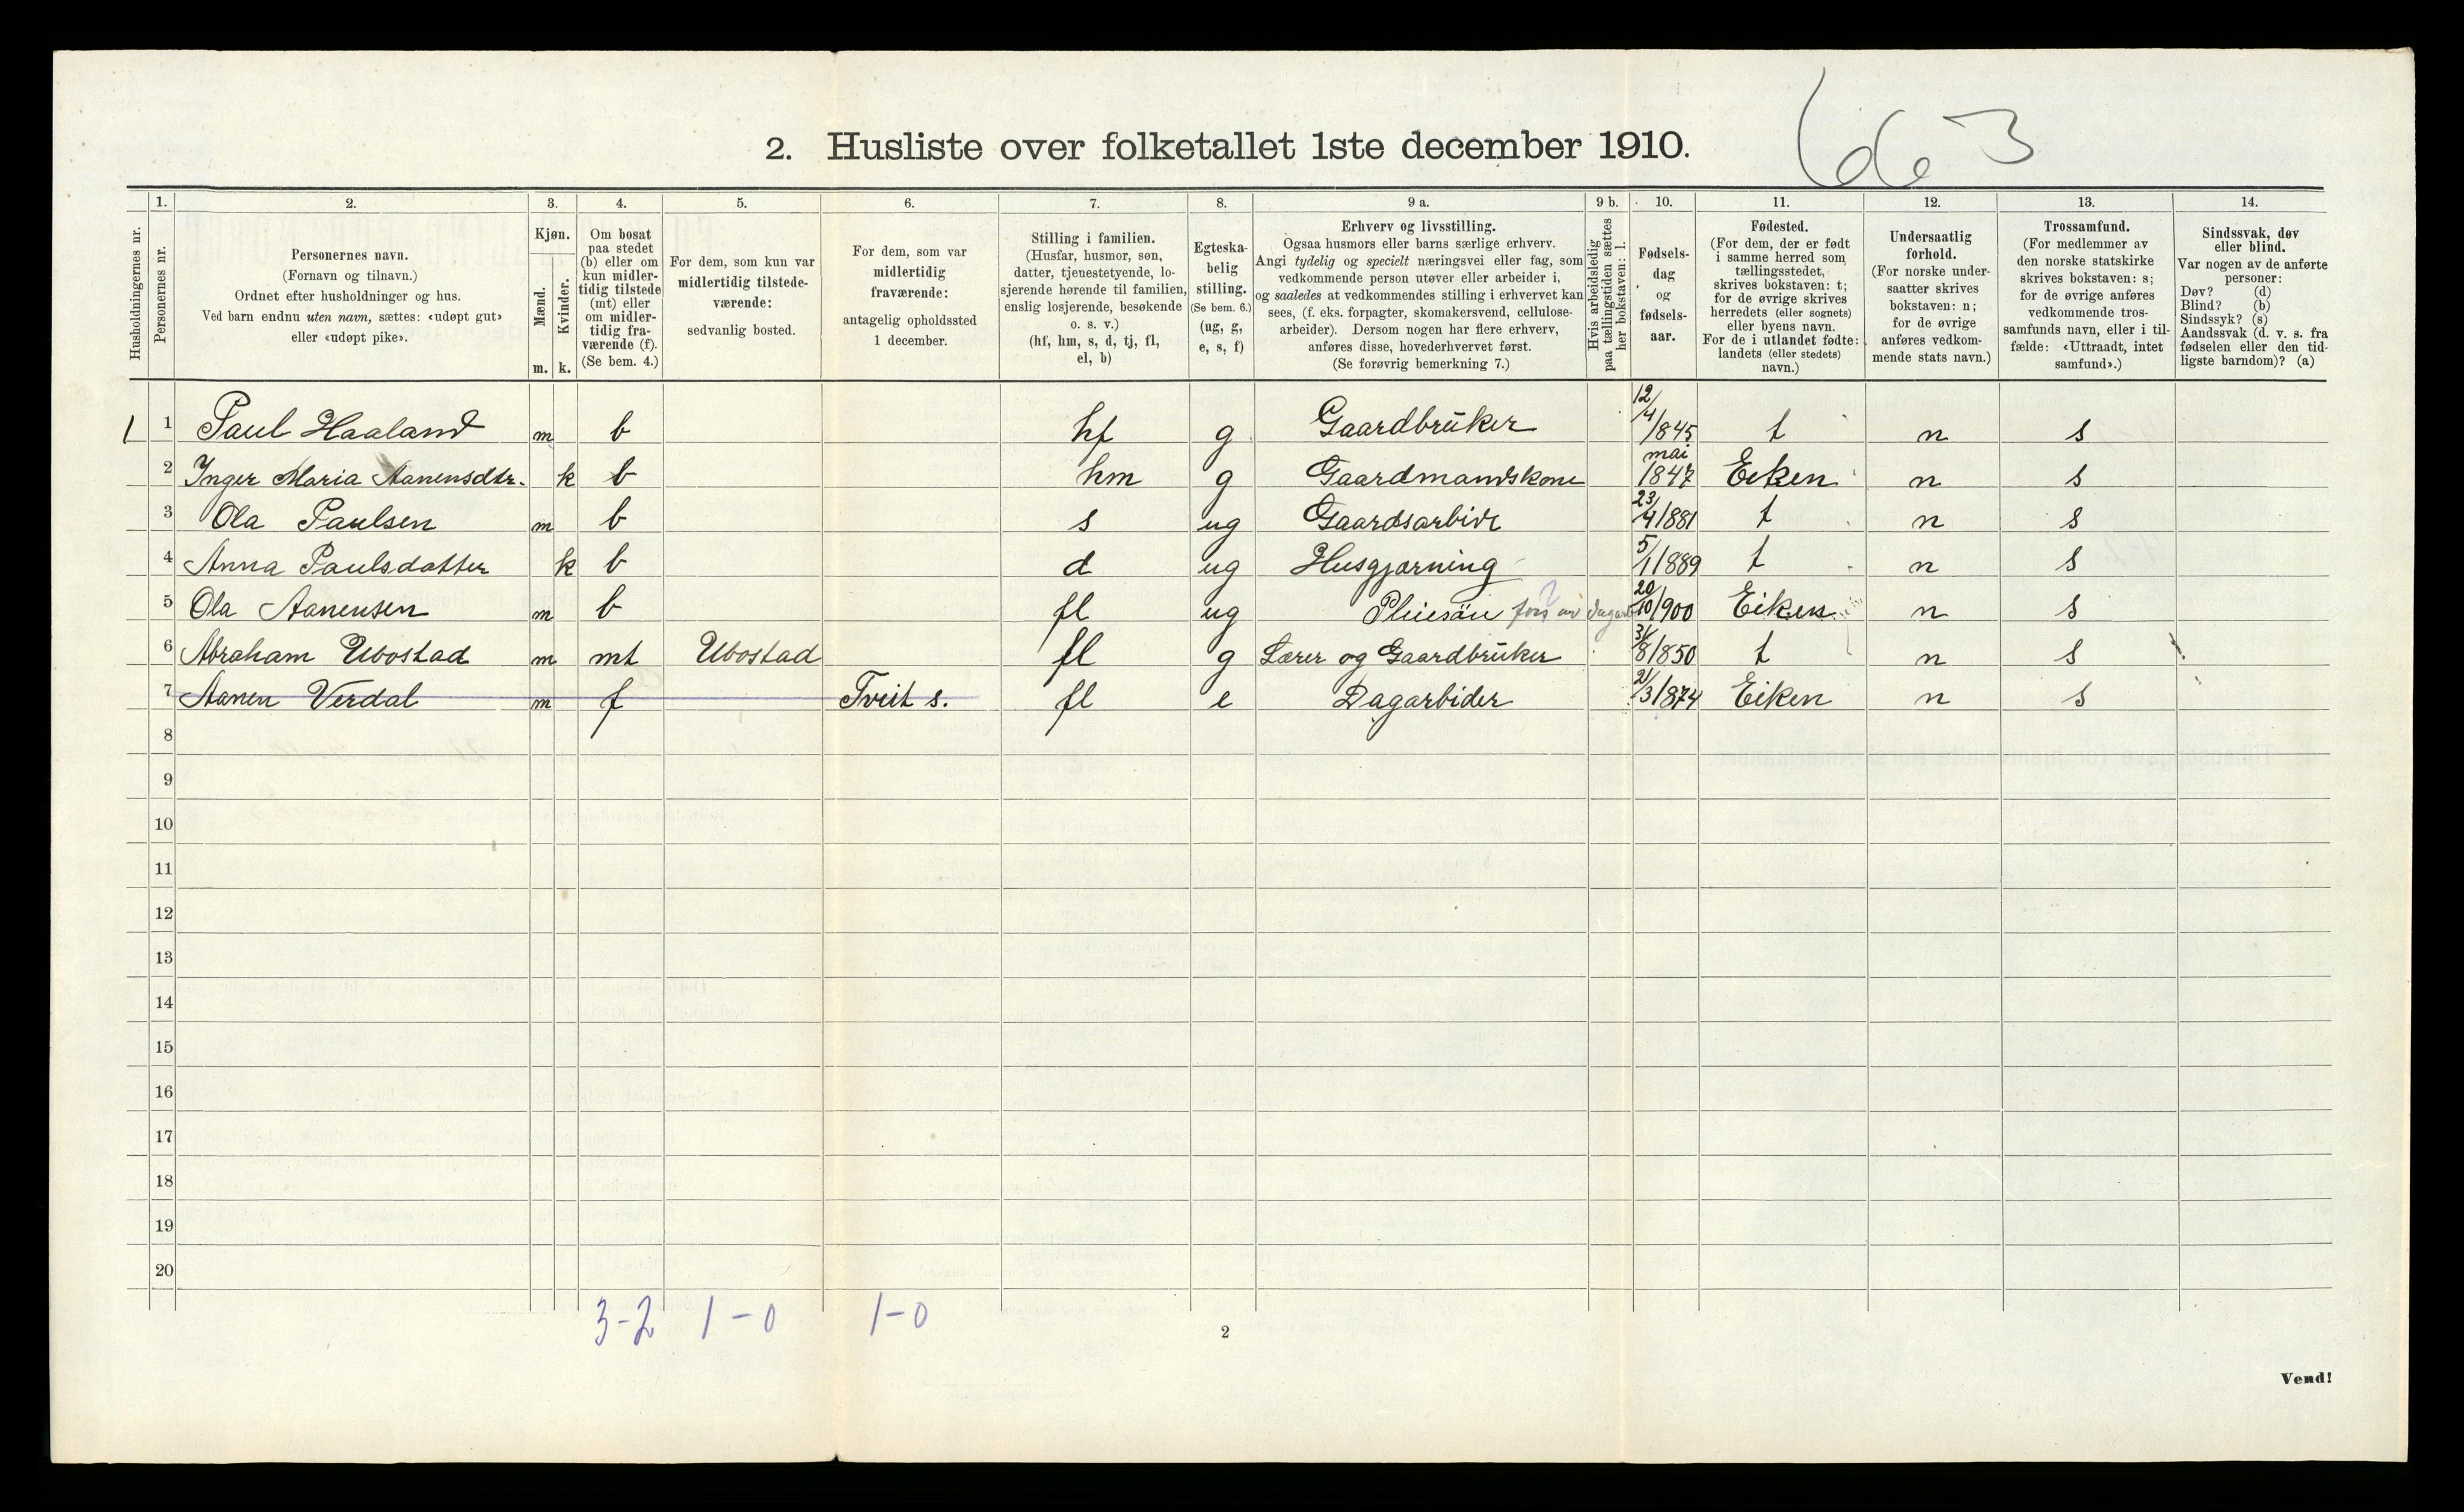 663
2. Husliste over folketallet 1ste december 1910.
Husholdningernes nr.
1. Personernes nr.
2. Personernes navn.
(Fornavn og tilnavn.)
Ordnet efter husholdninger og hus.
Ved barn endnu uten navn, sættes: «udøpt gut»
eller «udøpt pike».
3. Kjøn.
Mænd. Kvinder.
m. k.
4. Om bosat
paa stedet
(b) eller om
kun midler-
tidig tilstede
(mt) eller
om midler-
tidig fra-
værende (f).
(Se bem. 4.)
5. For dem, som kun var
midlertidig tilstede-
værende:
sedvanlig bosted.
6. For dem, som var
midlertidig
fraværende:
antagelig opholdssted
1 december.
7. Stilling i familien.
(Husfar, husmor, søn,
datter, tjenestetyende, lo-
sjerende hørende til familien,
enslig losjerende, besøkende
o. s. v.)
(hf, hm, s, d, tj, fl,
el, b)
8. Egteska-
belig
stilling.
(Se bem. 6.)
(ug, g,
e, s, f)
9 a. Erhverv og livsstilling.
Ogsaa husmors eller barns særlige erhverv.
Angi tydelig og specielt næringsvei eller fag, som
vedkommende person utøver eller arbeider i,
og saaledes at vedkommendes stilling i erhvervet kan
sees, (f. eks. forpagter, skomakersvend, cellulose-
arbeider). Dersom nogen har flere erhverv,
anføres disse, hovederhvervet først.
(Se forøvrig bemerkning 7.)
9 b. Hvis arbeidsledig
paa tællingstiden sættes
her bokstaven: l.
10. Fødsels-
dag
og
fødsels-
aar.
11. Fødested.
(For dem, der er født
i samme herred som
tællingsstedet,
skrives bokstaven: t;
for de øvrige skrives
herredets (eller sognets)
eller byens navn.
For de i utlandet fødte:
landets (eller stedets)
navn.)
12. Undersaatlig
forhold.
(For norske under-
saatter skrives
bokstaven: n;
for de øvrige
anføres vedkom-
mende stats navn.)
13. Trossamfund.
(For medlemmer av
den norske statskirke
skrives bokstaven: s;
for de øvrige anføres
vedkommende tros-
samfunds navn, eller i til-
fælde: «Uttraadt, intet
samfund».)
14. Sindssvak, døv
eller blind.
Var nogen av de anførte
personer:
Døv? (d)
Blind? (b)
Sindssyk? (s)
Aandssvak (d. v. s. fra
fødselen eller den tid-
ligste barndom)? (a)
1 1 Paul Haaland m b hf g Gaardbruker 12/4/1845 t n s
2 Inger Maria Aanensdtr. k b hm g Gaardmandskone mai 1847 Eeken n s
3 Ola Paulsen m b s ug Gaardsarbide 23/4/1881 t n s
4 Anna Paulsdatter k b d ug Husgjærning 5/1/1889 t n s
5 Ola Aanensen m b fl ug Pleiesøn 20/10/1900 Eiken n s
6 Abraham Ubostad m mt Ubostad fl g Lærer og Gaardbruker 31/8/1850 t n s
7 Aanen Verdal m f Tveit s. fl e Dagarbider 2/3/1874 Eiken n s
8
9
10
11
12
13
14
15
16
17
18
19
20
3-2 1-0 1-0
2
Vend!